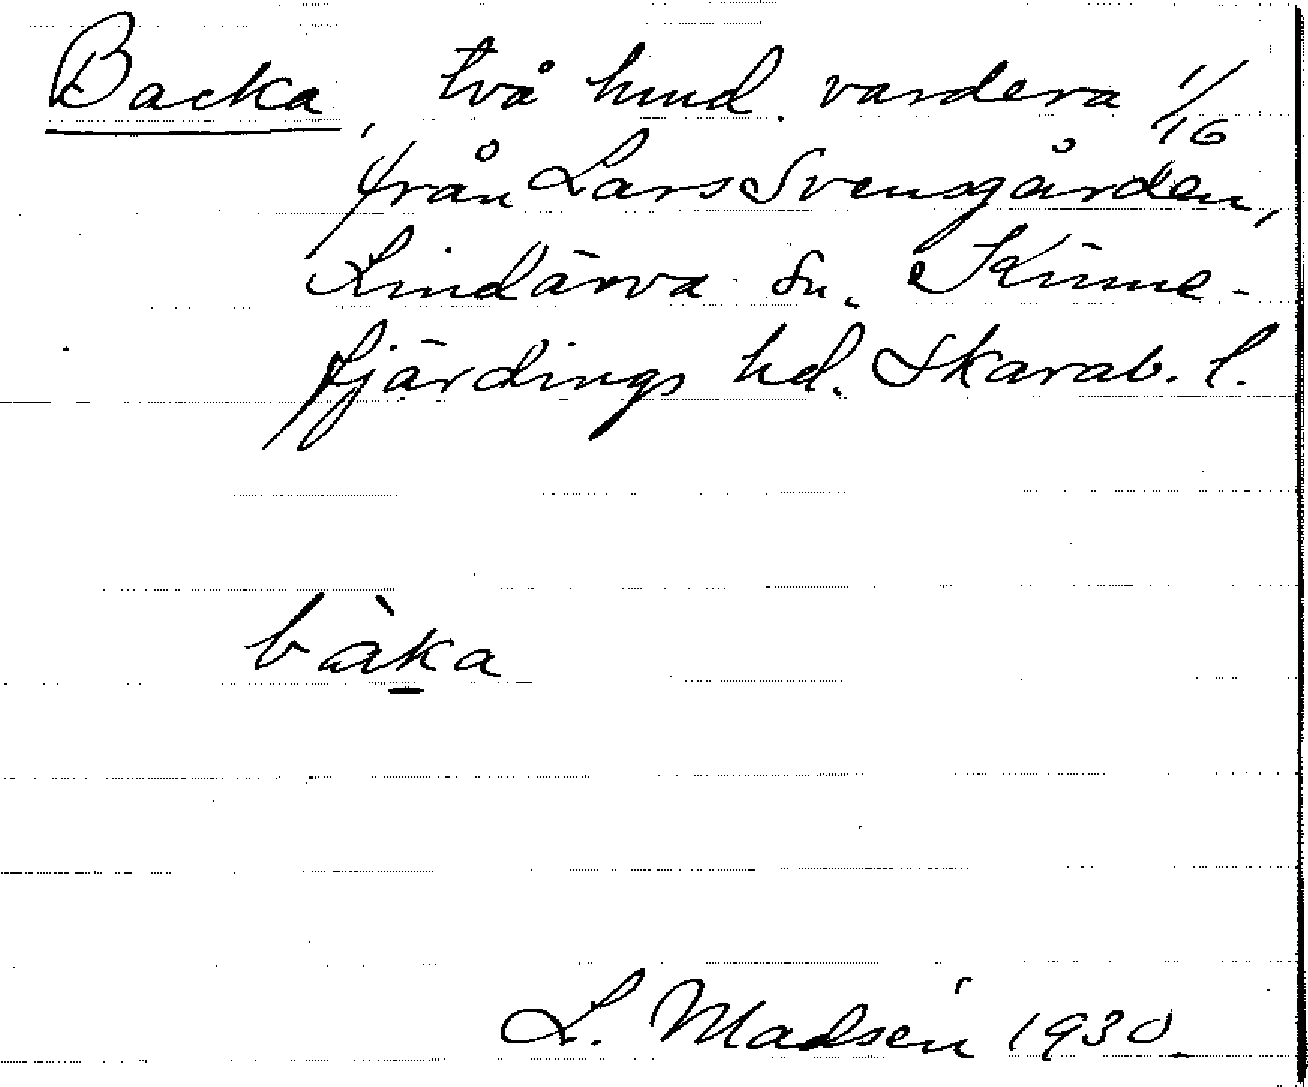 Backa, två hmd. vardera 1/16
från Lars Svensgården,
Lindärva sn. Kinne-
fjärdings hd. Skarab. l.
bàka
L. Madsén 1930.